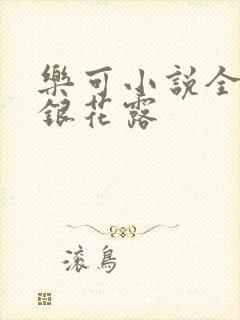 樂可小説全
銀花露
滚鳥